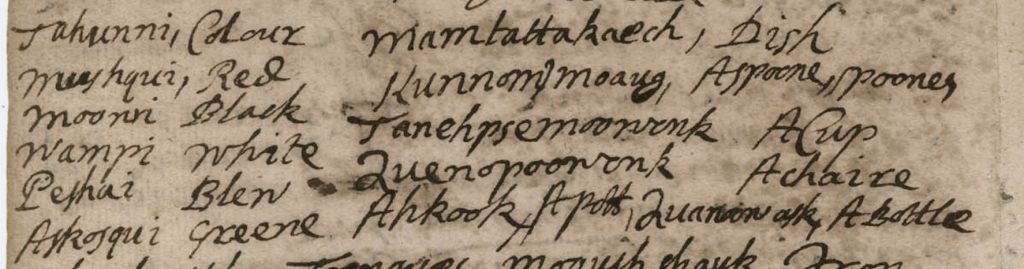 Tahunni, Colour Mamtattakaech, Dish
Mushqui, Red Kunnom, moaug, A spoone, spoones
Moonni Black Tanehpsemoowonk A Cup
Wampi White Quenopoowonk A chaire
Peshai Blew Ahkook, A pott, Quanonask, A Bottle
Askosqui Greene